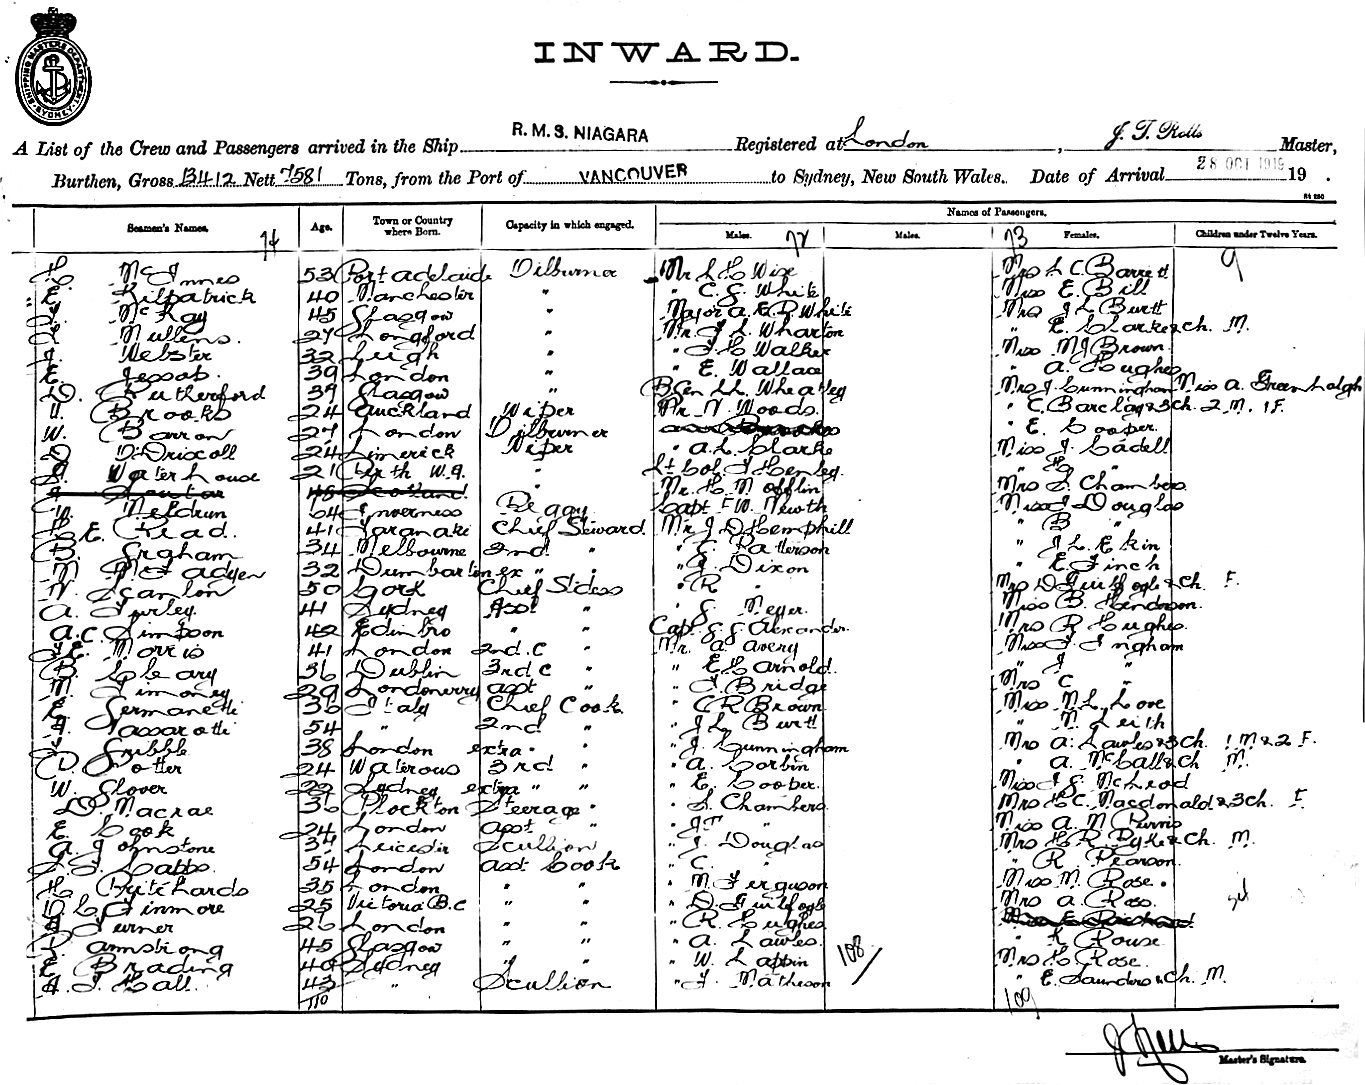 SHIPPING MASTERS DEPARTMENT SYDNEY
INWARD.
A List of the Crew and Passengers arrived in the Ship R.M.S. NIAGARA Registered at London, J. T. Rolls Master,
Burthen, Gross 13412 Nett 7581 Tons, from the Port of VANCOUVER to Sydney, New South Wales. Date of Arrival 28 OCT 1919 19 .
Seamen's Names. Age. Town or Country where Born. Capacity in which engaged. Names of Passengers.
Males. Males. Females. Children under Twelve Years.
74 72 73 9
McInnes 53 Port Adelaide Oilburner Mr L H Wise Mrs L C Barrett
Kilpatrick 40 Manchester " " C. G. White Miss E. Bill
McKay 45 Glasgow " Major A. E. P. White Mrs J L Burtt
Mullens. 27 Longford " Mr. J. L. Wharton " E. Clarke & ch. M.
Webster 32 Leigh " " J H Walker Miss M J Brown
E. Jessop. 39 London " " E. Wallace " A. Hughes
D. Rutherford 39 Glasgow " B Gen LL. Wheatley Mrs J. Cunningham Miss A. Greenhalgh
Brooks 24 Auckland Wiper Mr. N Woods. " C. Barclay & 3 ch. 2 M. 1 F.
W. Barron 27 London Oilburner " E. Cooper.
D O'Driscoll 24 Limerick Wiper " A. L. Clarke Miss J. Cadell
Waterhouse 21 Perth W.A. " Lt Col. J Henley. " "
48 Scotland Mr. H. M Offlin Mrs S. Chambers
Meldrum 64 Inverness Capt F W. Newth Miss J Douglas
H. E. Read. 41 Taranaki Chief Steward Mr J D Hemphill " B "
Ingham 34 Melbourne 2nd " " C. Patterson " J L. Ekin
M. McFadyen 32 Dumbarton ex " " " J Dixon " E Finch
N. Scanlon 50 Cork Chief Stdess " R " Mrs D Guilfogle & ch F.
A. Turley. 41 Sydney Asst " " G. Meyer. Miss B. Henderson.
A. C. Simpson 42 Edinbro " " Capt. G. G. Alexander. Mrs R Hughes.
Morris 41 London 2nd. C " Mr. A Avery Miss J Ingham
B. Cleary 36 Dublin 3rd. C " " E C Arnold. " J "
M. Timoney 29 Londonderry asst " " J Bridge Mrs C "
Germanetti 36 Italy Chief Cook. " C R Brown Miss M. L. Love
Massarotti 54 " 2nd " " J L. Burtt " N. Leith
Gribble 38 London extra " " " J. Cunningham Mrs A. Lawles & 3 ch. 1 M & 2 F.
D. Potter 24 Waterous 3rd " " A. Corbin " A. McCall & ch M.
W. Glover 29 Sydney extra " " " E. Cooper Miss J. G. McLeod
D. Macrae 36 Plockton Steerage " " S. Chambers Mrs H C. Macdonald & 3 ch. F.
E. Cook 24 London asst " " J T " Miss A. M Purvis
A. Johnstone 34 Leicester Scullion " J. Douglas Mrs H R Dyke & ch. M.
Cabbs. 54 London asst Cook " C. " " R Pearson.
H Pritchards 35 London " " " M. Ferguson Miss M. Rose.
Finmore 25 Victoria B.C " " " D. Guilfogle Mrs A. Ross.
Turner 26 London " " " R. Hughes
Armstrong 45 Glasgow " " " A. Lawles. " R Rouse
E. Brading 40 Sydney " " " W. Lappin Mrs H Rose.
Hall. 43 " Scullion " J Matheson " E. Saunders & ch. M.
110 108 109
J T Rolls
Master's Signature.